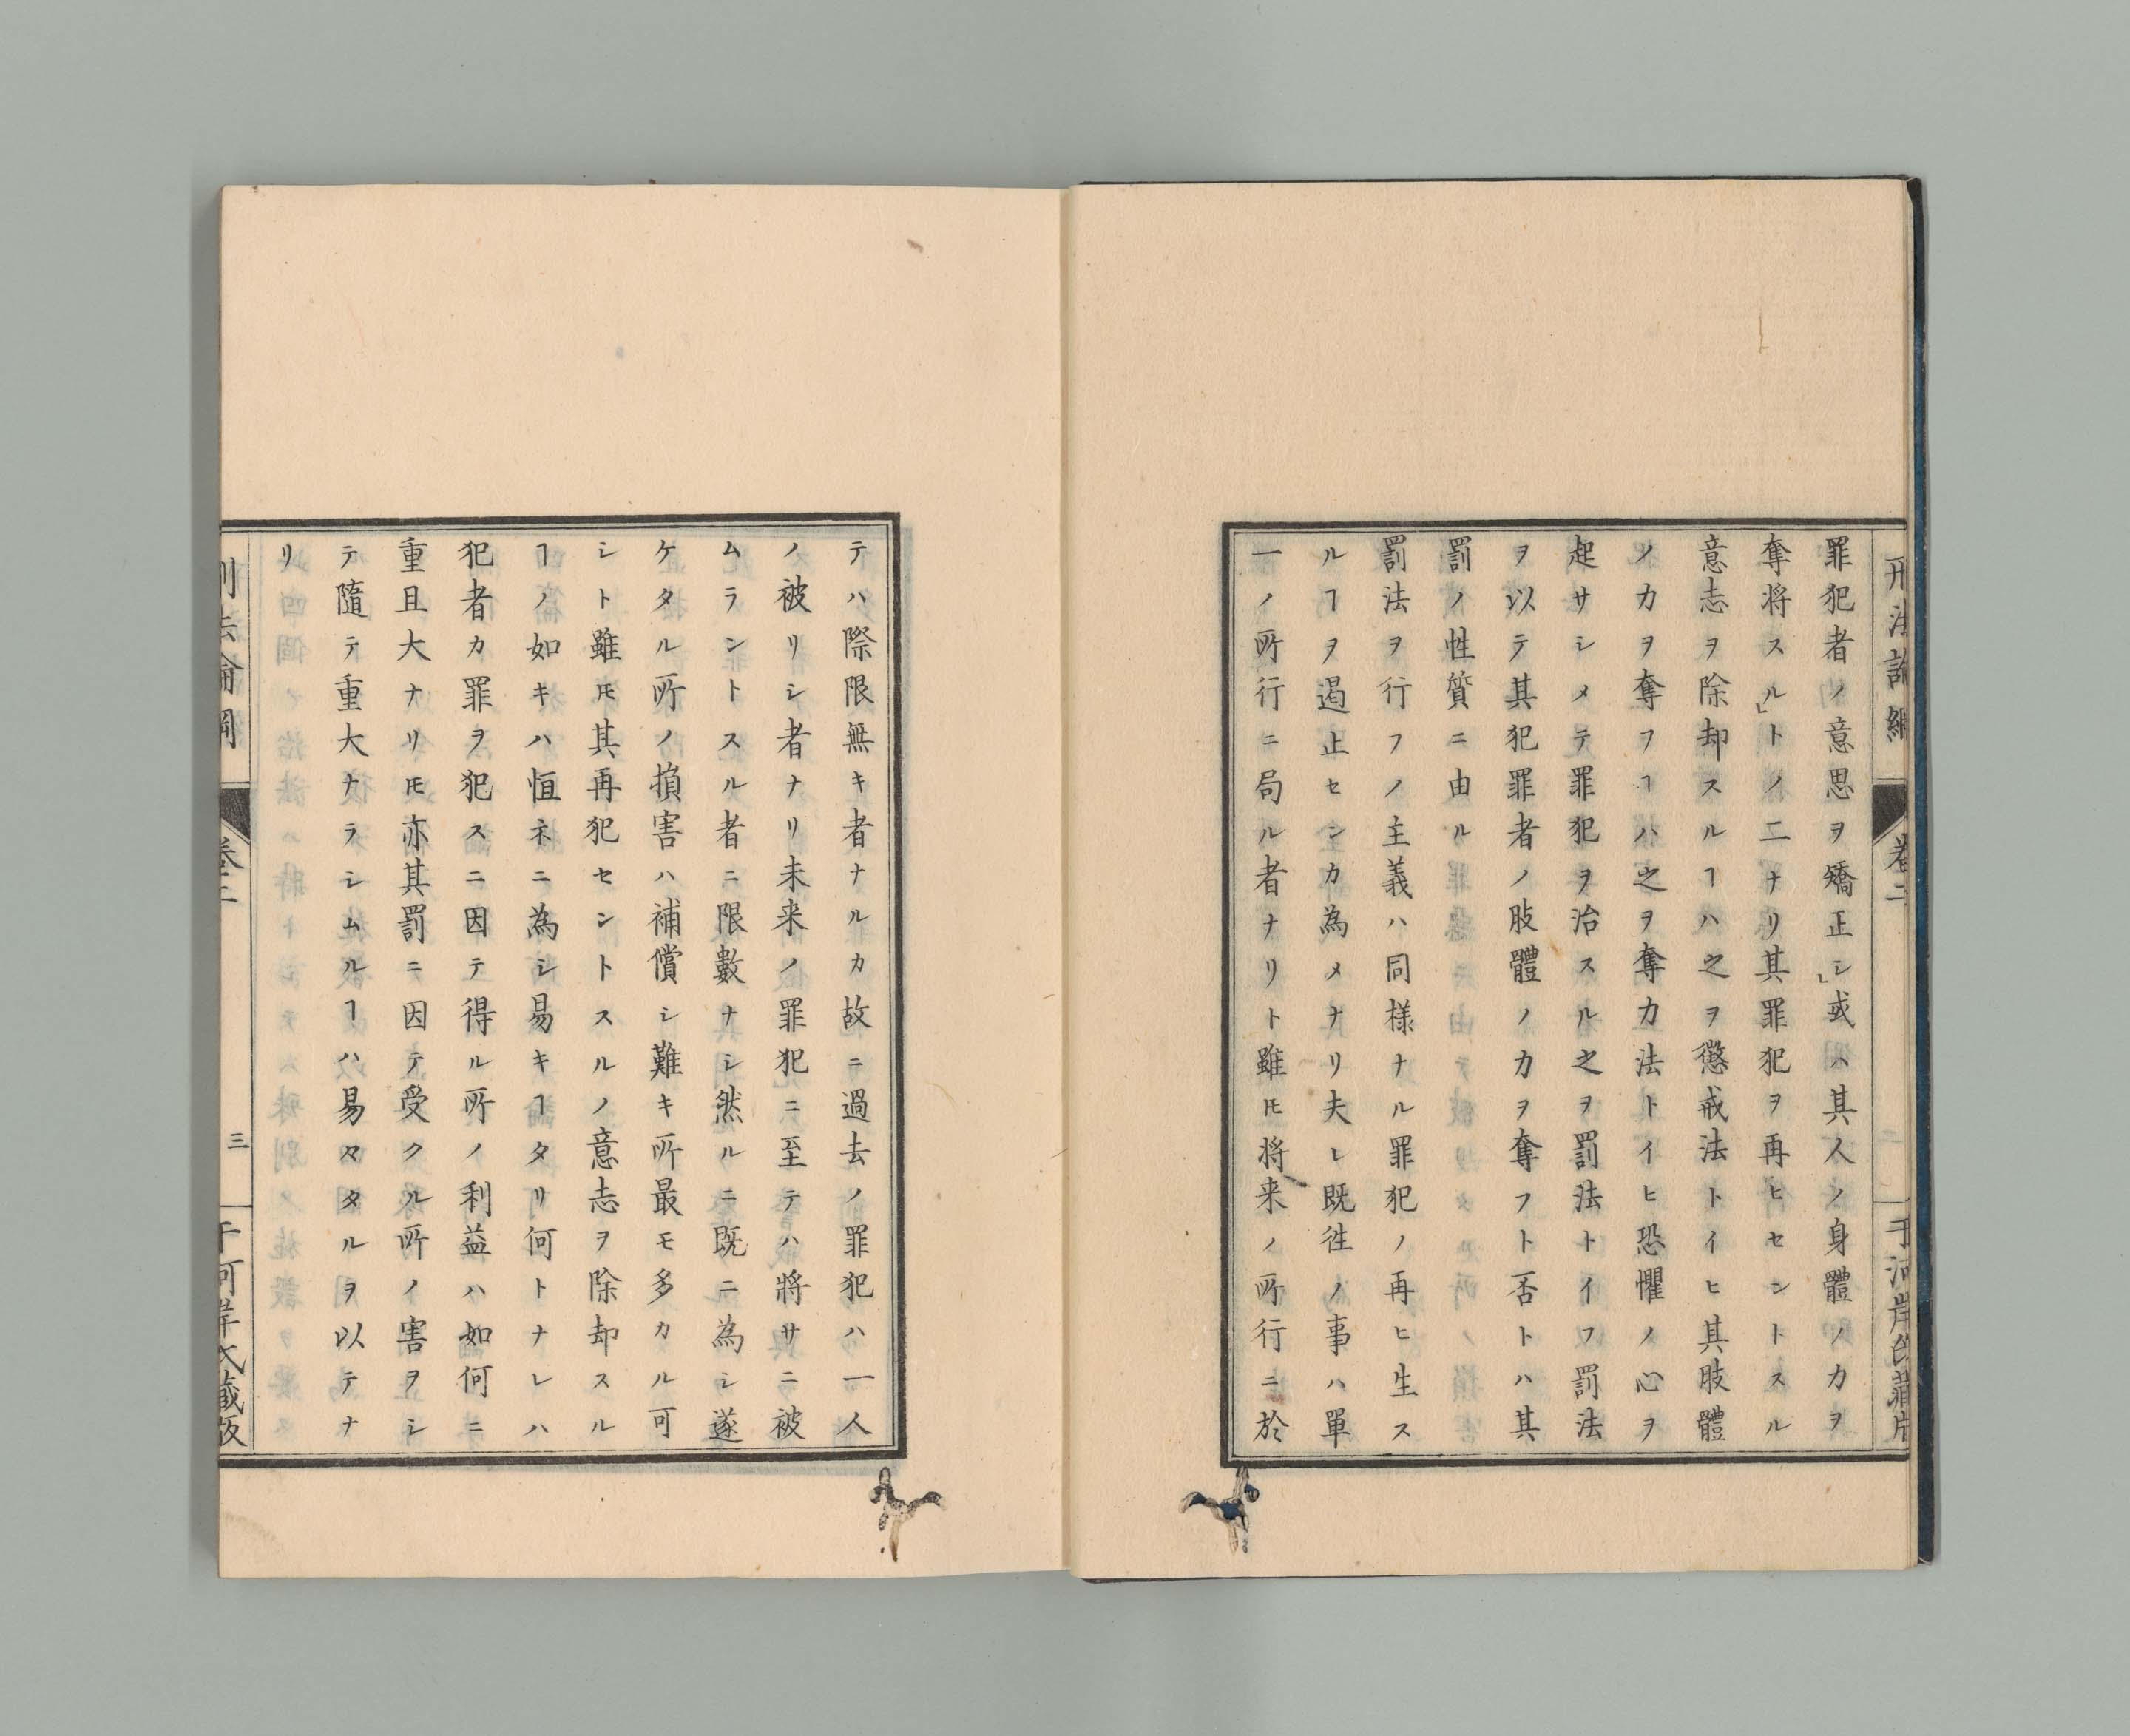 刑法論綱
卷二
二
于河岸氏藏版
罪犯者ノ意思ヲ矯正シ」或ハ其人ノ身體ノカヲ
奪將スル」トノ二ナリ其罪犯ヲ再ヒセントスル
意志ヲ除却スルヿハ之ヲ懲戒法トイヒ其肢體
ノカヲ奪フヿハ之ヲ奪力法トイヒ恐懼ノ心ヲ
起サシメテ罪犯ヲ治スル之ヲ罰法トイフ罰法
ヲ以テ其犯罪者ノ肢體ノカヲ奪フト否トハ其
罰ノ性質ニ由ル
罰法ヲ行フノ主義ハ同様ナル罪犯ノ再ヒ生ス
ルヿヲ遏止センカ為メナリ夫レ既徃ノ事ハ單
一ノ所行ニ局ル者ナリト雖𪜈将来ノ所行ニ於
テハ際限無キ者ナルカ故ニ過去ノ罪犯ハ一人
ノ被リシ者ナリ未来ノ罪犯ニ至テハ將サニ被
ムラントスル者ニ限數ナシ然ルニ既ニ為シ遂
ケタル所ノ損害ハ補償シ難キ所最モ多カル可
シト雖𪜈其再犯セントスルノ意志ヲ除却スル
ヿノ如キハ恒ネニ為シ易キヿタリ何トナレハ
犯者カ罪ヲ犯スニ因テ得ル所ノ利益ハ如何ニ
重且大ナリ𪜈亦其罰ニ因テ受クル所ノ害ヲシ
テ隨テ重大ナラシムルヿハ易々タルヲ以テナ
リ
刑法論綱
卷二
三
于河岸氏藏版